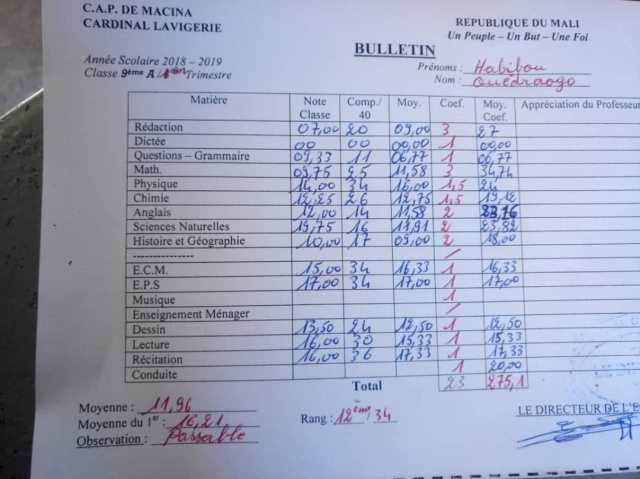 C.A.P. DE MACINA
CARDINAL LAVIGERIE
REPUBLIQUE DU MALI
Un Peuple – Un But – Une Foi
BULLETIN
Année Scolaire 2018 – 2019
Classe 9ème A / 1er Trimestre
Prénoms : Habibou
Nom : Ouédraogo
Matière Note Classe Comp./40 Moy. Coef. Moy. Coef. Appréciation du Professeur
Rédaction 07,00 20 09,00 3 27
Dictée 00 00 00,00 1 00,00
Questions – Grammaire 09,33 11 06,77 1 06,77
Math. 09,75 25 11,58 3 34,74
Physique 14,00 34 16,00 1,5 24
Chimie 12,25 26 12,75 1,5 19,12
Anglais 12,00 14 11,58 2 23,16
Sciences Naturelles 19,75 16 11,91 2 23,82
Histoire et Géographie 10,00 17 09,00 2 18,00
---------------
E.C.M. 15,00 34 16,33 1 16,33
E.P.S 17,00 34 17,00 1 17,00
Musique 1
Enseignement Ménager /
Dessin 13,50 24 12,50 1 12,50
Lecture 16,00 30 15,33 1 15,33
Récitation 16,00 36 17,33 1 17,33
Conduite 1 20,00
Total 23 275,1
Moyenne : 11,96
Moyenne du 1er : 16,21
Rang : 12ème/34
Observation : Passable
LE DIRECTEUR DE L'E